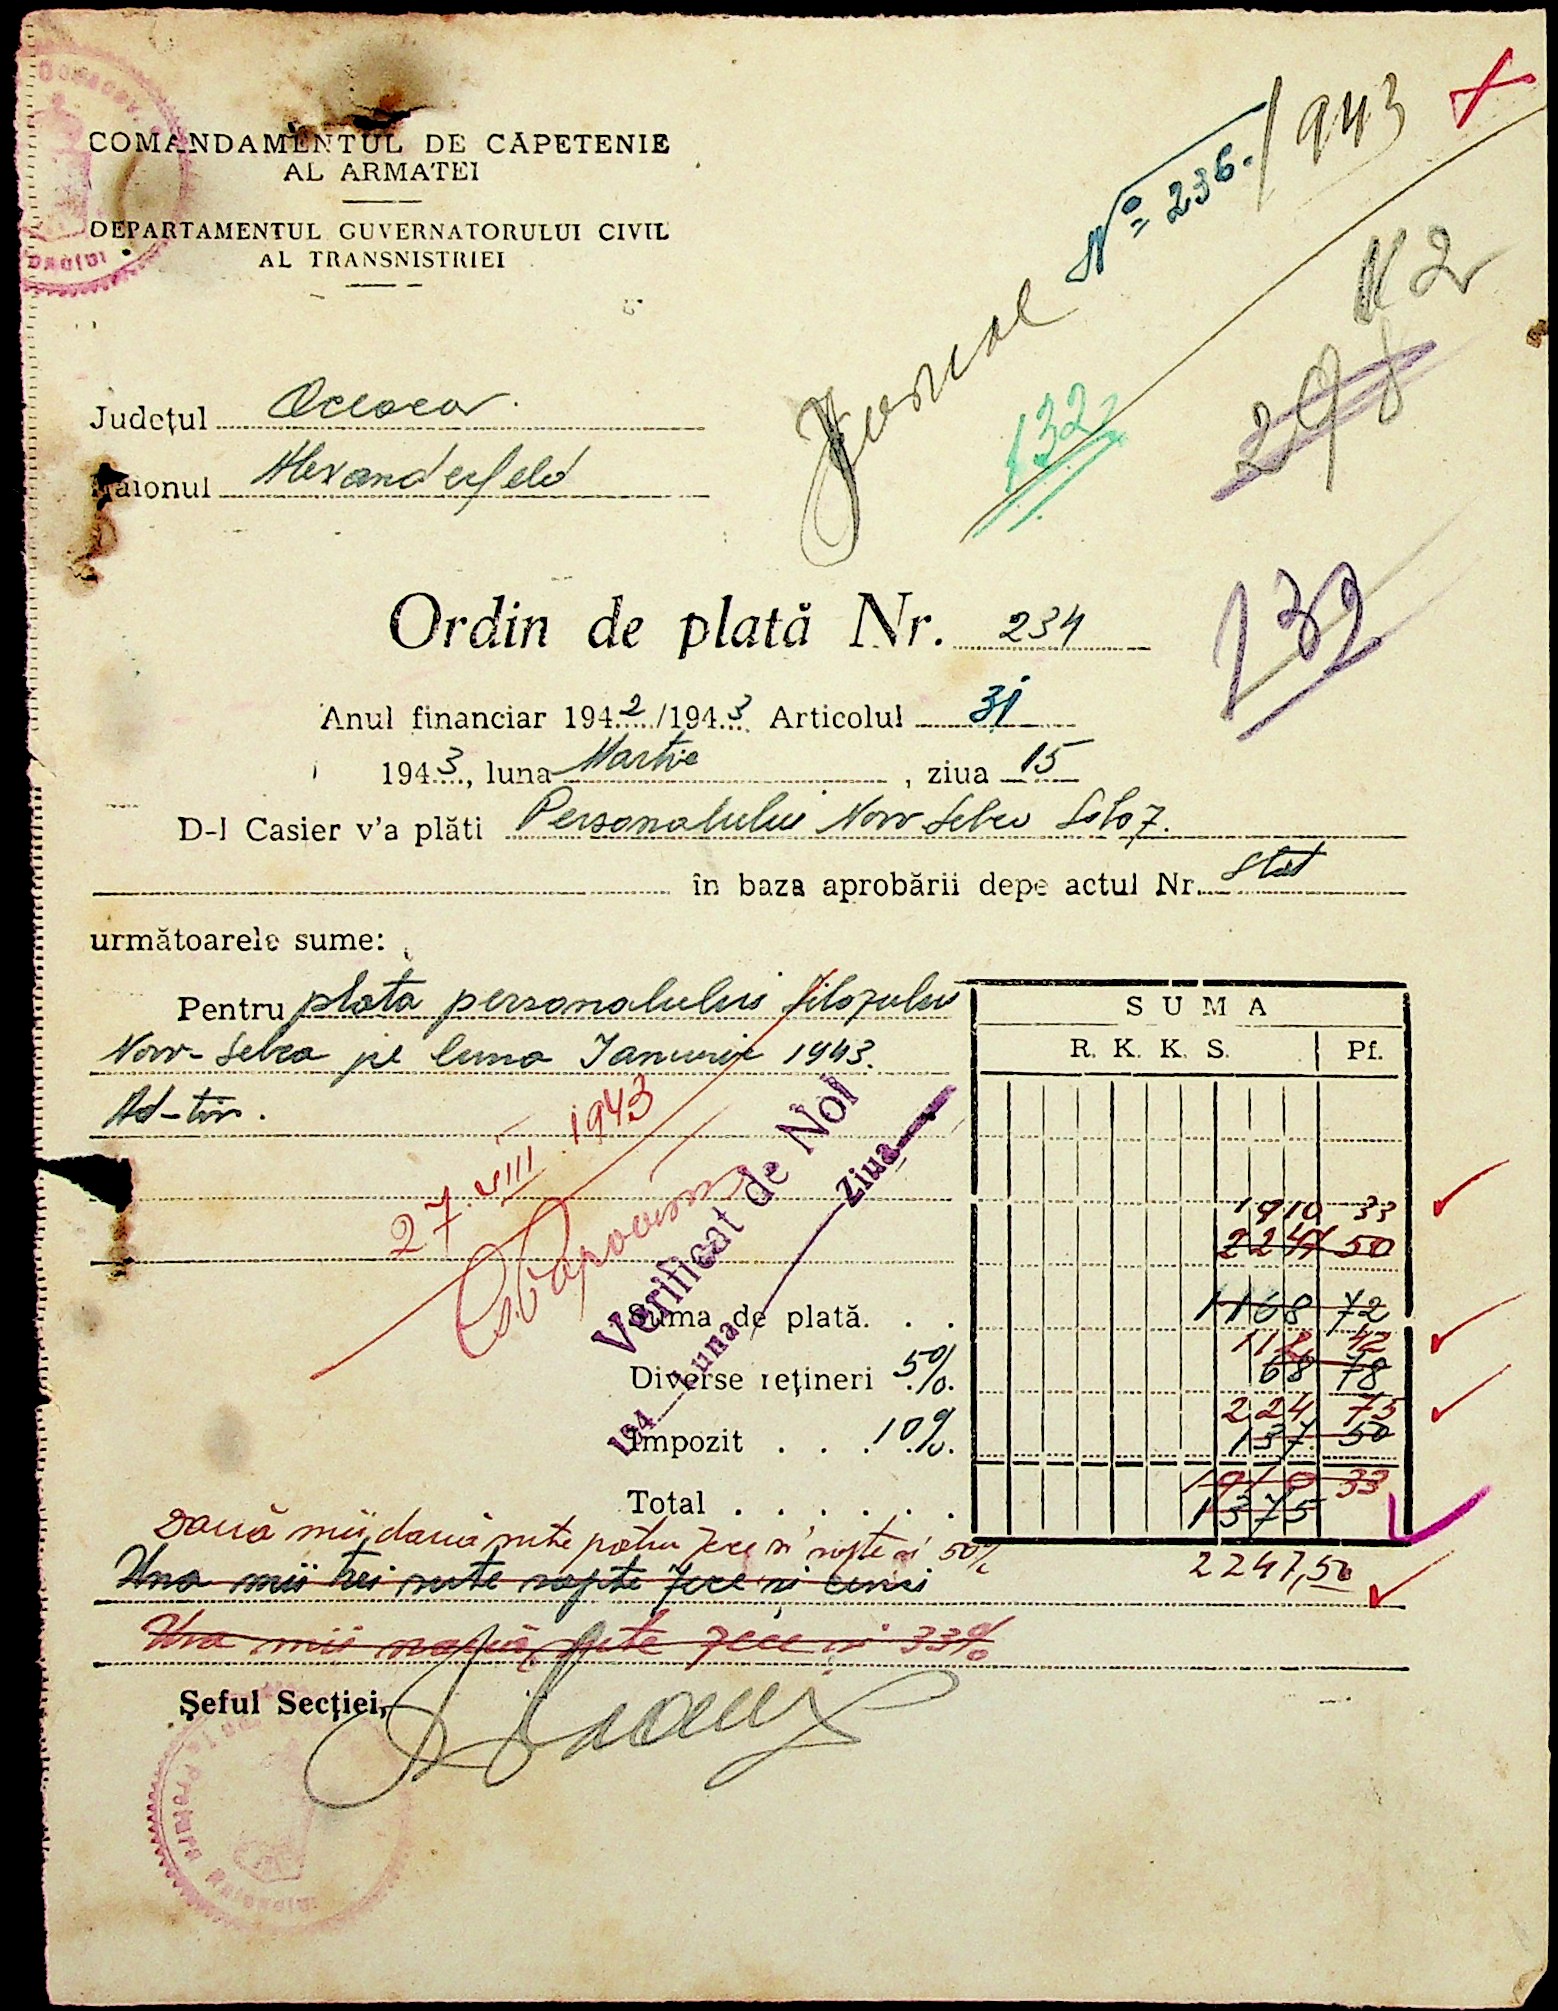 COMANDAMENTUL DE CĂPETENIE
AL ARMATEI
DEPARTAMENTUL GUVERNATORULUI CIVIL
AL TRANSNISTRIEI
Jurnal Nº 236./943
K2
298
132
132
Județul Oceacov.
Raionul Alexanderfeld
Ordin de plată Nr. 234
Anul financiar 1942/1943 Articolul 31
1943, luna Martie, ziua 15
D-l Casier v'a plăti Personalului Novo Sebca Siloz.
în baza aprobării depe actul Nr. Stat
următoarele sume:
Pentru plata personalului silozului
Novo-Sebca pe luna Ianuarie 1943.
SUMA
R. K. K. S. Pf.
27.VIII.1943
Verificat de Noi
194 Luna Ziua
1910 33
2247 50
Suma de plată. . . 1168 72
112 42
Diverse rețineri 5% 68 78
224 75
Impozit . . . 10% 137 50
1910 33
Total . . . . . . 1375
Două mii, două sute patru zece și șapte și 50%
2247,50
Una mii trei sute șapte zece și cinci
Una mii nouă sute zece și 33%
Șeful Secției,
Pretura Raionului